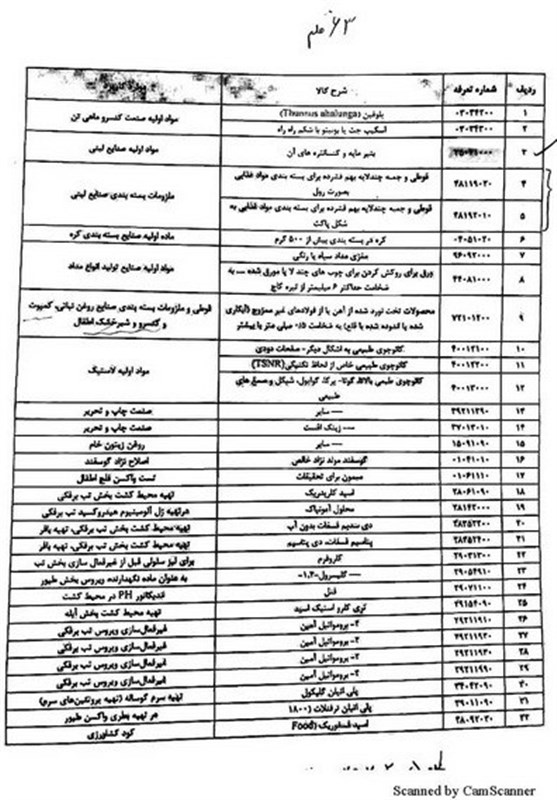 ۶۳ قلم
ردیف شماره تعرفه شرح کالا
۱ ۰۳۰۳۴۲۰۰ یلوفین (Thunnus ahalunga) مواد اولیه صنعت کنسرو ماهی تن
۲ ۰۳۰۳۴۳۰۰ اسکیپ جک یا بونیتو با شکم راه راه
۳ پنیر مایه و کنسانتره های آن مواد اولیه صنایع لبنی
۴ ۴۸۱۱۹۰۲۰ قوطی و جعبه چندلایه بهم فشرده برای بسته بندی مواد غذایی بصورت رول ملزومات بسته بندی صنایع لبنی
۵ ۴۸۱۹۲۰۱۰ قوطی و جعبه چندلایه بهم فشرده برای بسته بندی مواد غذایی به شکل پاکت
۶ ۰۴۰۵۱۰۲۰ کره در بسته بندی بیش از ۵۰۰ گرم ماده اولیه صنایع بسته بندی کره
۷ ۹۶۰۹۲۰۰۰ مغزی مداد سیاه یا رنگی مواد اولیه صنایع تولید انواع مداد
۸ ۴۴۰۸۱۰۰۰ ورق برای روکش کردن برای چوب های چند لا یا مورق شده ... به ضخامت حداکثر ۶ میلیمتر از تیره کاج
۹ ۷۲۱۰۱۲۰۰ محصولات تخت نورد شده از آهن یا از فولادهای غیر ممزوج (آبکاری شده یا اندوده شده با قلع) به ضخامت ۰/۵ میلی متر یا بیشتر قوطی و ملزومات بسته بندی صنایع روغن نباتی، کمپوت و کنسرو و شیرخشک اطفال
۱۰ ۴۰۰۱۲۱۰۰ کائوچوی طبیعی به اشکال دیگر- صفحات دودی مواد اولیه لاستیک
۱۱ ۴۰۰۱۲۲۰۰ کائوچوی طبیعی خاص از لحاظ تکنیکی (TSNR)
۱۲ ۴۰۰۱۳۰۰۰ کائوچوی طبیعی بالاتا، گوتا- پرکا، گوایول، شیکل و صمغ های طبیعی
۱۳ ۳۹۲۱۱۳۹۰ --- سایر صنعت چاپ و تحریر
۱۴ ۳۷۰۱۳۰۱۰ --- زینک افست صنعت چاپ و تحریر
۱۵ ۱۵۰۹۱۰۹۰ --- سایر روغن زیتون خام
۱۶ ۰۱۰۴۱۰۱۰ گوسفند مولد نژاد خالص اصلاح نژاد گوسفند
۱۷ ۰۱۰۶۱۱۱۰ میمون برای تحقیقات تست واکسن فلج اطفال
۱۸ ۲۸۰۶۱۰۹۰ اسید کلریدریک تهیه محیط کشت تب برفکی
۱۹ ۲۸۱۴۲۰۰۰ محلول آمونیاک در تهیه ژل آلومینیوم هیدروکسید تب برفکی
۲۰ ۲۸۳۵۲۲۰۰ دی سدیم فسفات بدون آب تهیه محیط کشت بخش تب برفکی، تهیه بافر
۲۱ ۲۸۳۵۲۴۰۰ پتاسیم فسفات، دی پتاسیم تهیه محیط کشت بخش تب برفکی، تهیه بافر
۲۲ ۲۹۰۳۱۳۰۰ کلروفرم برای لیز سلولی قبل از غیرفعال سازی بخش تب
۲۳ ۲۹۰۵۴۹۱۰ --- گلیسرول به عنوان ماده نگهدارنده ویروس بخش طیور
۲۴ ۲۹۰۷۱۱۰۰ فنل اندیکاتور PH در محیط کشت
۲۵ ۲۹۱۵۴۰۹۰ تری کلرو استیک اسید تهیه محیط کشت بخش آبله
۲۶ ۲۹۲۱۱۹۱۰ ۲- برومواتیل آمین غیرفعال‌سازی ویروس تب برفکی
۲۷ ۲۹۲۱۱۹۲۰ ۲- برومواتیل آمین غیرفعال‌سازی ویروس تب برفکی
۲۸ ۲۹۲۱۱۹۳۰ ۲- برومواتیل آمین غیرفعال‌سازی ویروس تب برفکی
۲۹ ۲۹۲۱۱۹۹۰ ۲- برومواتیل آمین غیرفعال‌سازی ویروس تب برفکی
۳۰ ۳۴۰۴۲۰۹۰ پلی اتیلن گلیکول تهیه سرم گوساله (تهیه پروتئین‌های سرم)
۳۱ ۳۹۰۱۱۰۹۰ پلی اتیلن ترفتالات (۱۸۰۰ در تهیه بطری واکسن طیور
۳۲ ۲۸۰۹۲۰۲۰ اسید فسفوریک (Food کود کشاورزی
Scanned by CamScanner